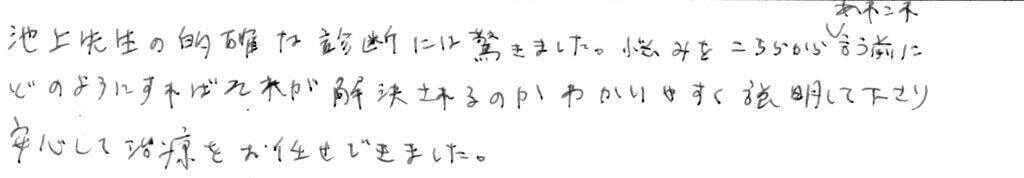 池上先生の的確な診断には驚きました。悩みをこちらからあれこれ言う前に
どのようにすればそれが解決されるのかわかりやすく説明して下さり
安心して治療をお任せできました。